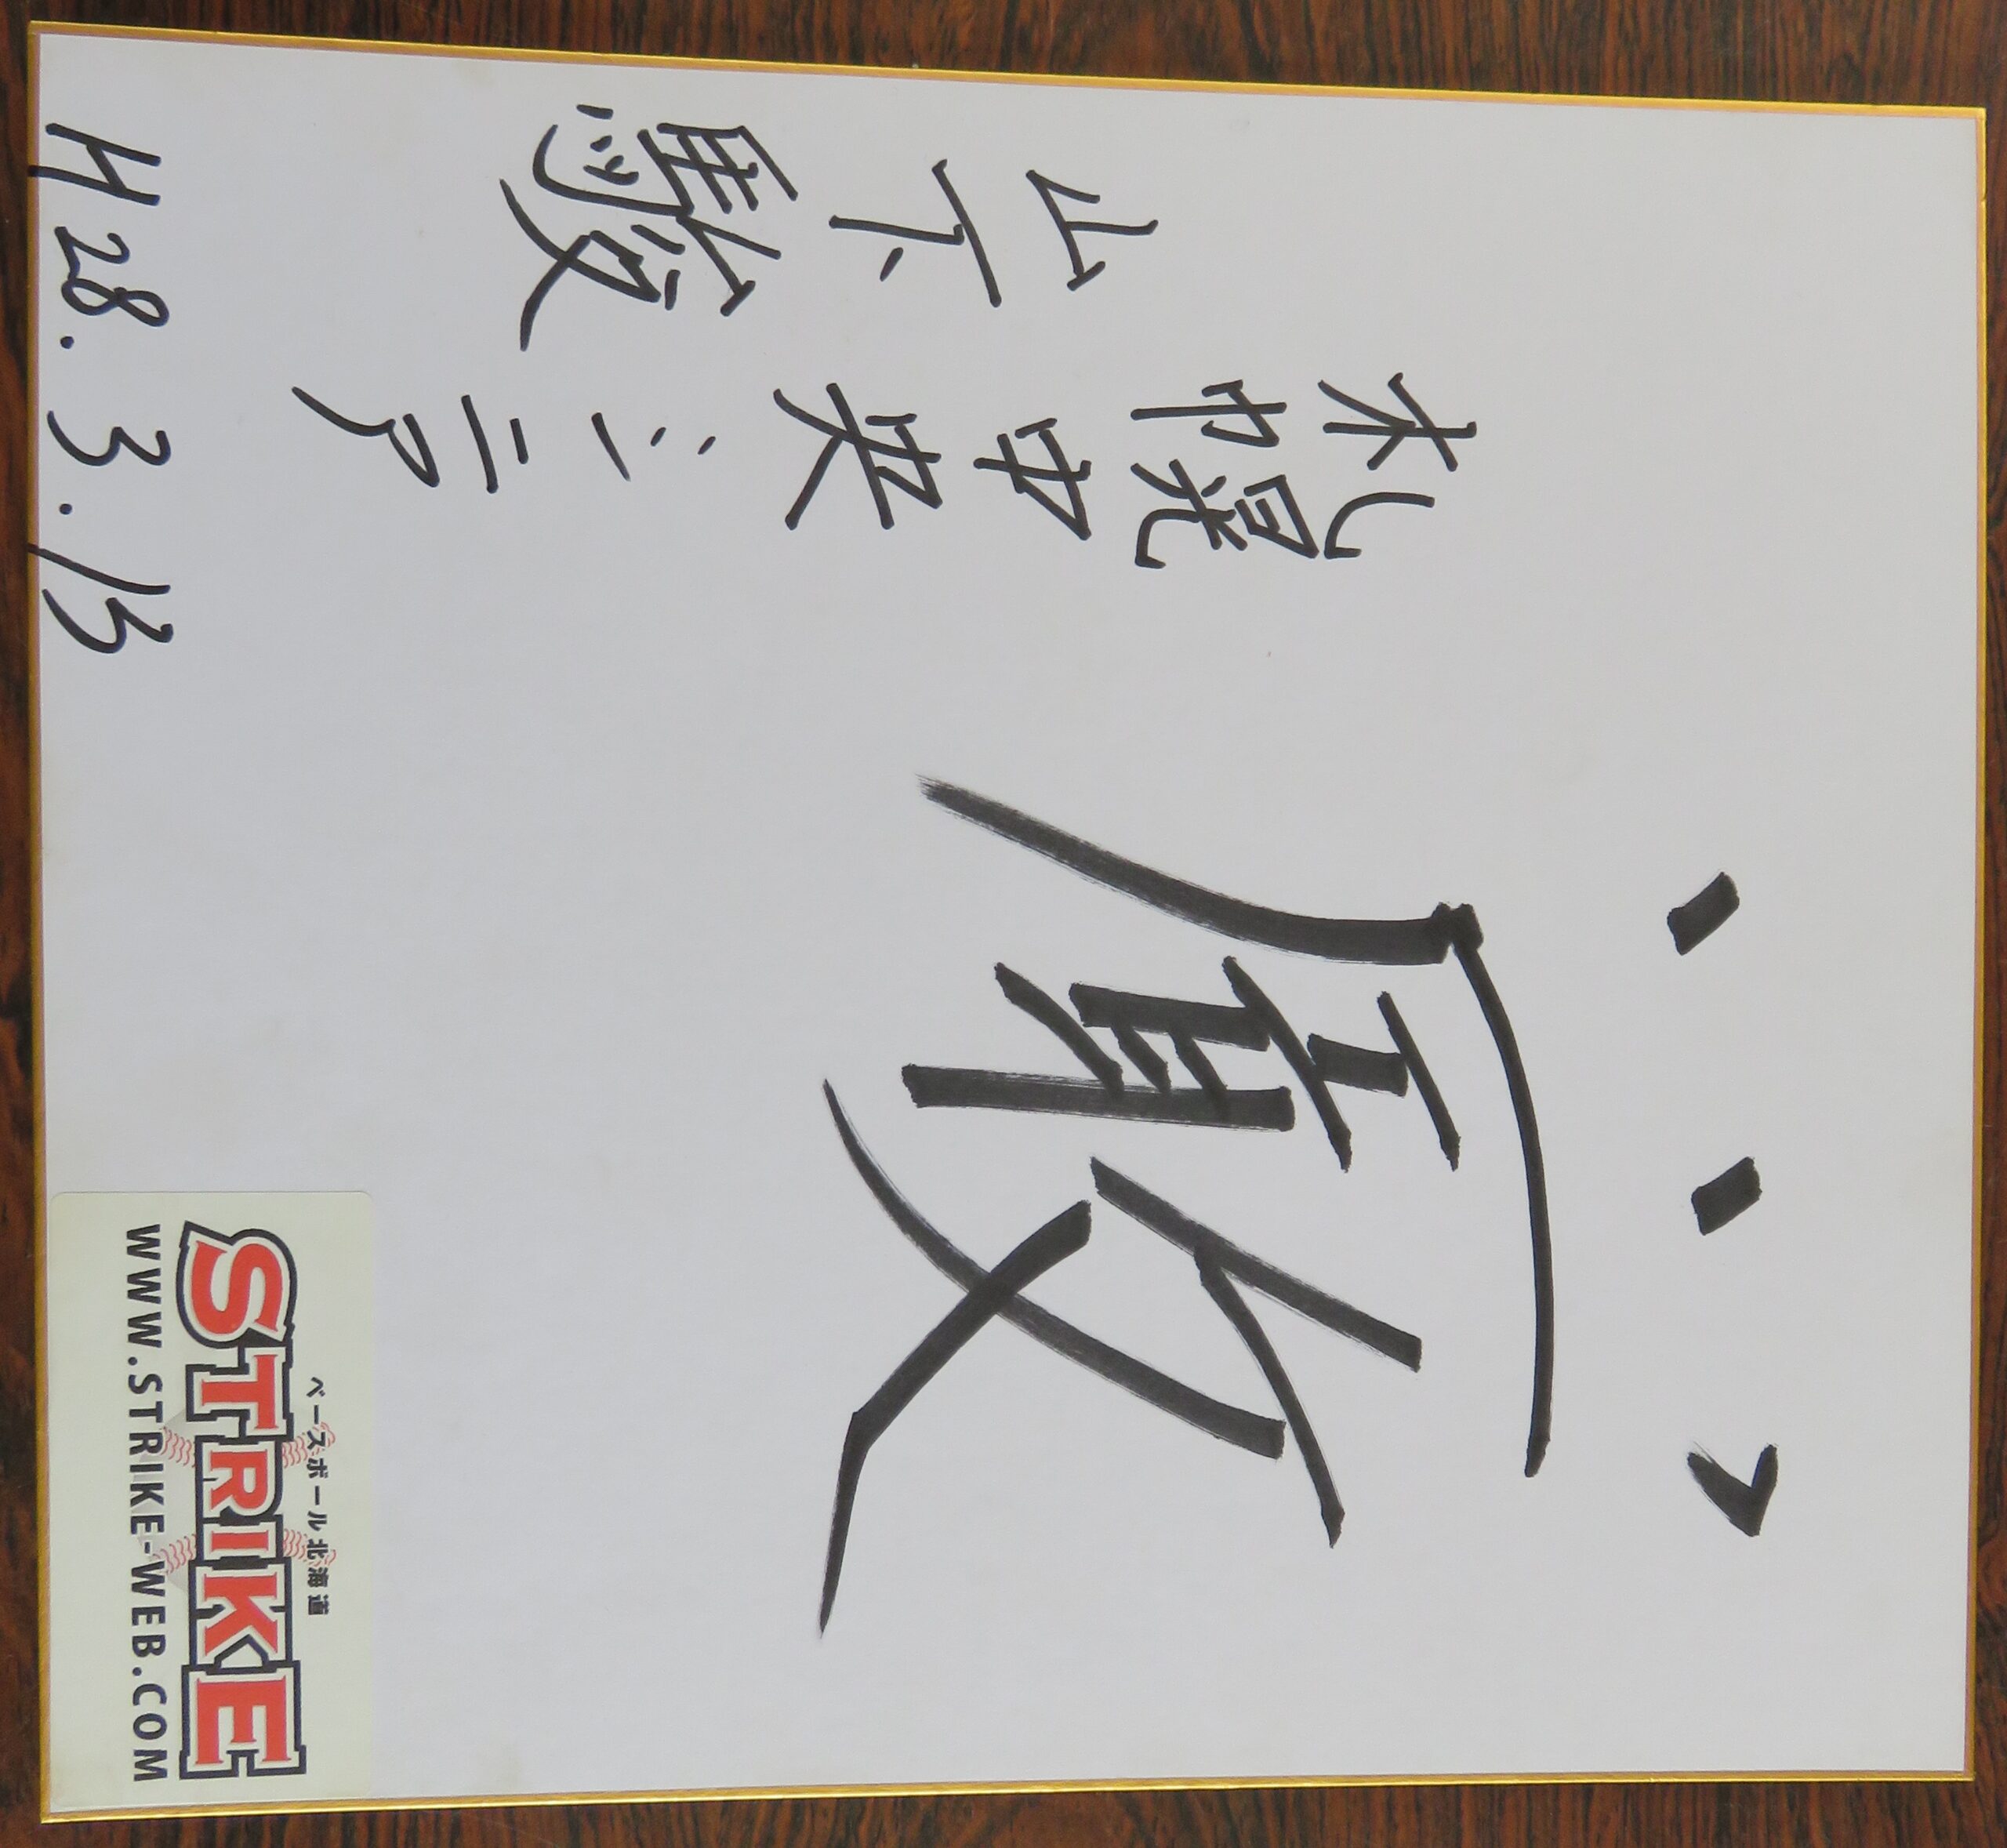 厳
札幌中央シニア
山下駿
H28.3.13
ベースボール北海道
STRIKE
WWW.STRIKE-WEB.COM